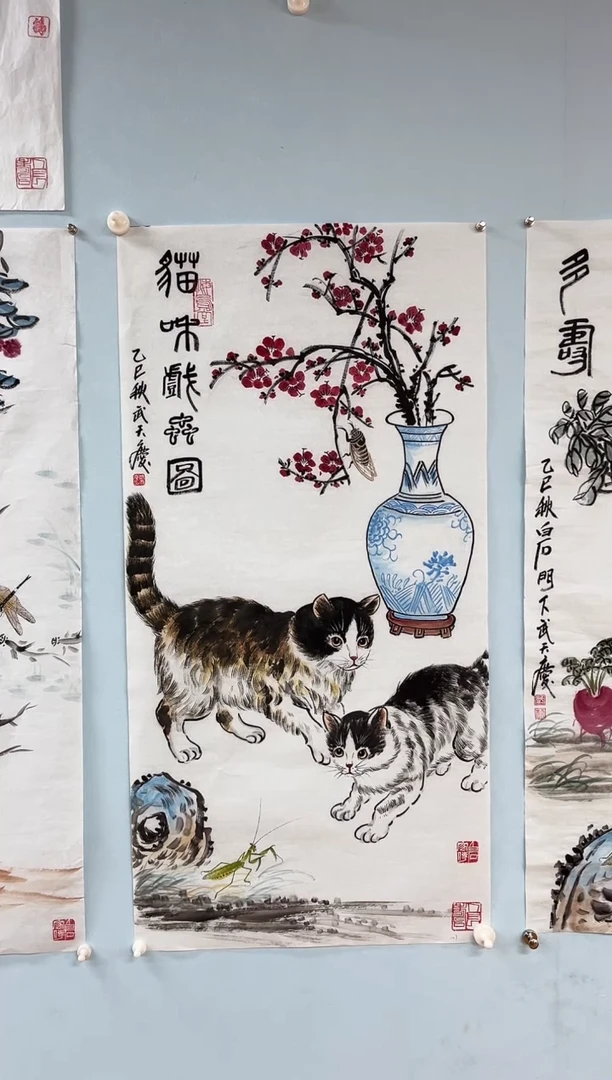 貓咪戲蟲圖
乙巳秋武天慶
多壽
乙巳秋白石門下武天慶